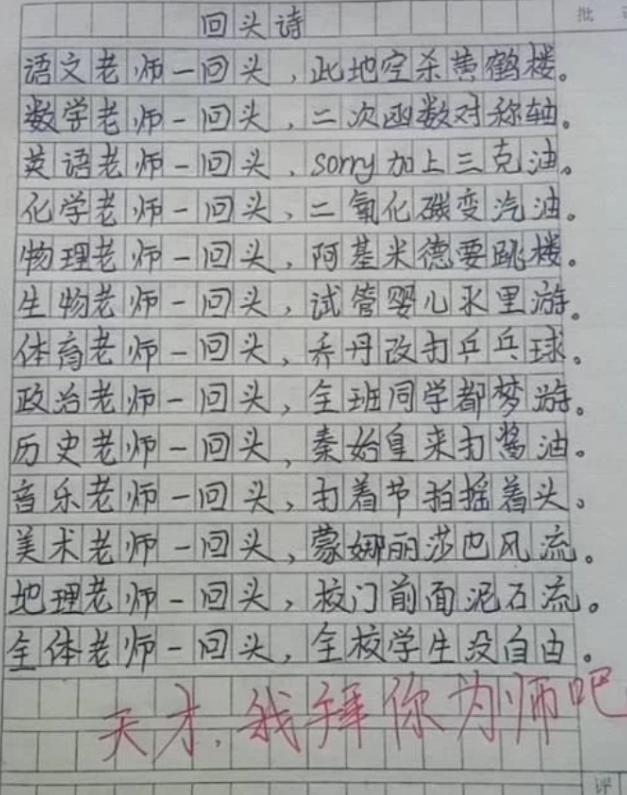 批
回头诗
语文老师一回头，此地空杀黄鹤楼。
数学老师一回头，二次函数对称轴。
英语老师一回头，sorry加上三克油。
化学老师一回头，二氧化碳变汽油。
物理老师一回头，阿基米德要跳楼。
生物老师一回头，试管婴儿水里游。
体育老师一回头，乔丹改打乒乓球。
政治老师一回头，全班同学都梦游。
历史老师一回头，秦始皇来打酱油。
音乐老师一回头，打着节拍摇着头。
美术老师一回头，蒙娜丽莎也风流。
地理老师一回头，校门前面泥石流。
全体老师一回头，全校学生没自由。
天才，我拜你为师吧
评